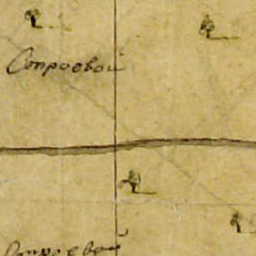 Строевой
Строевой